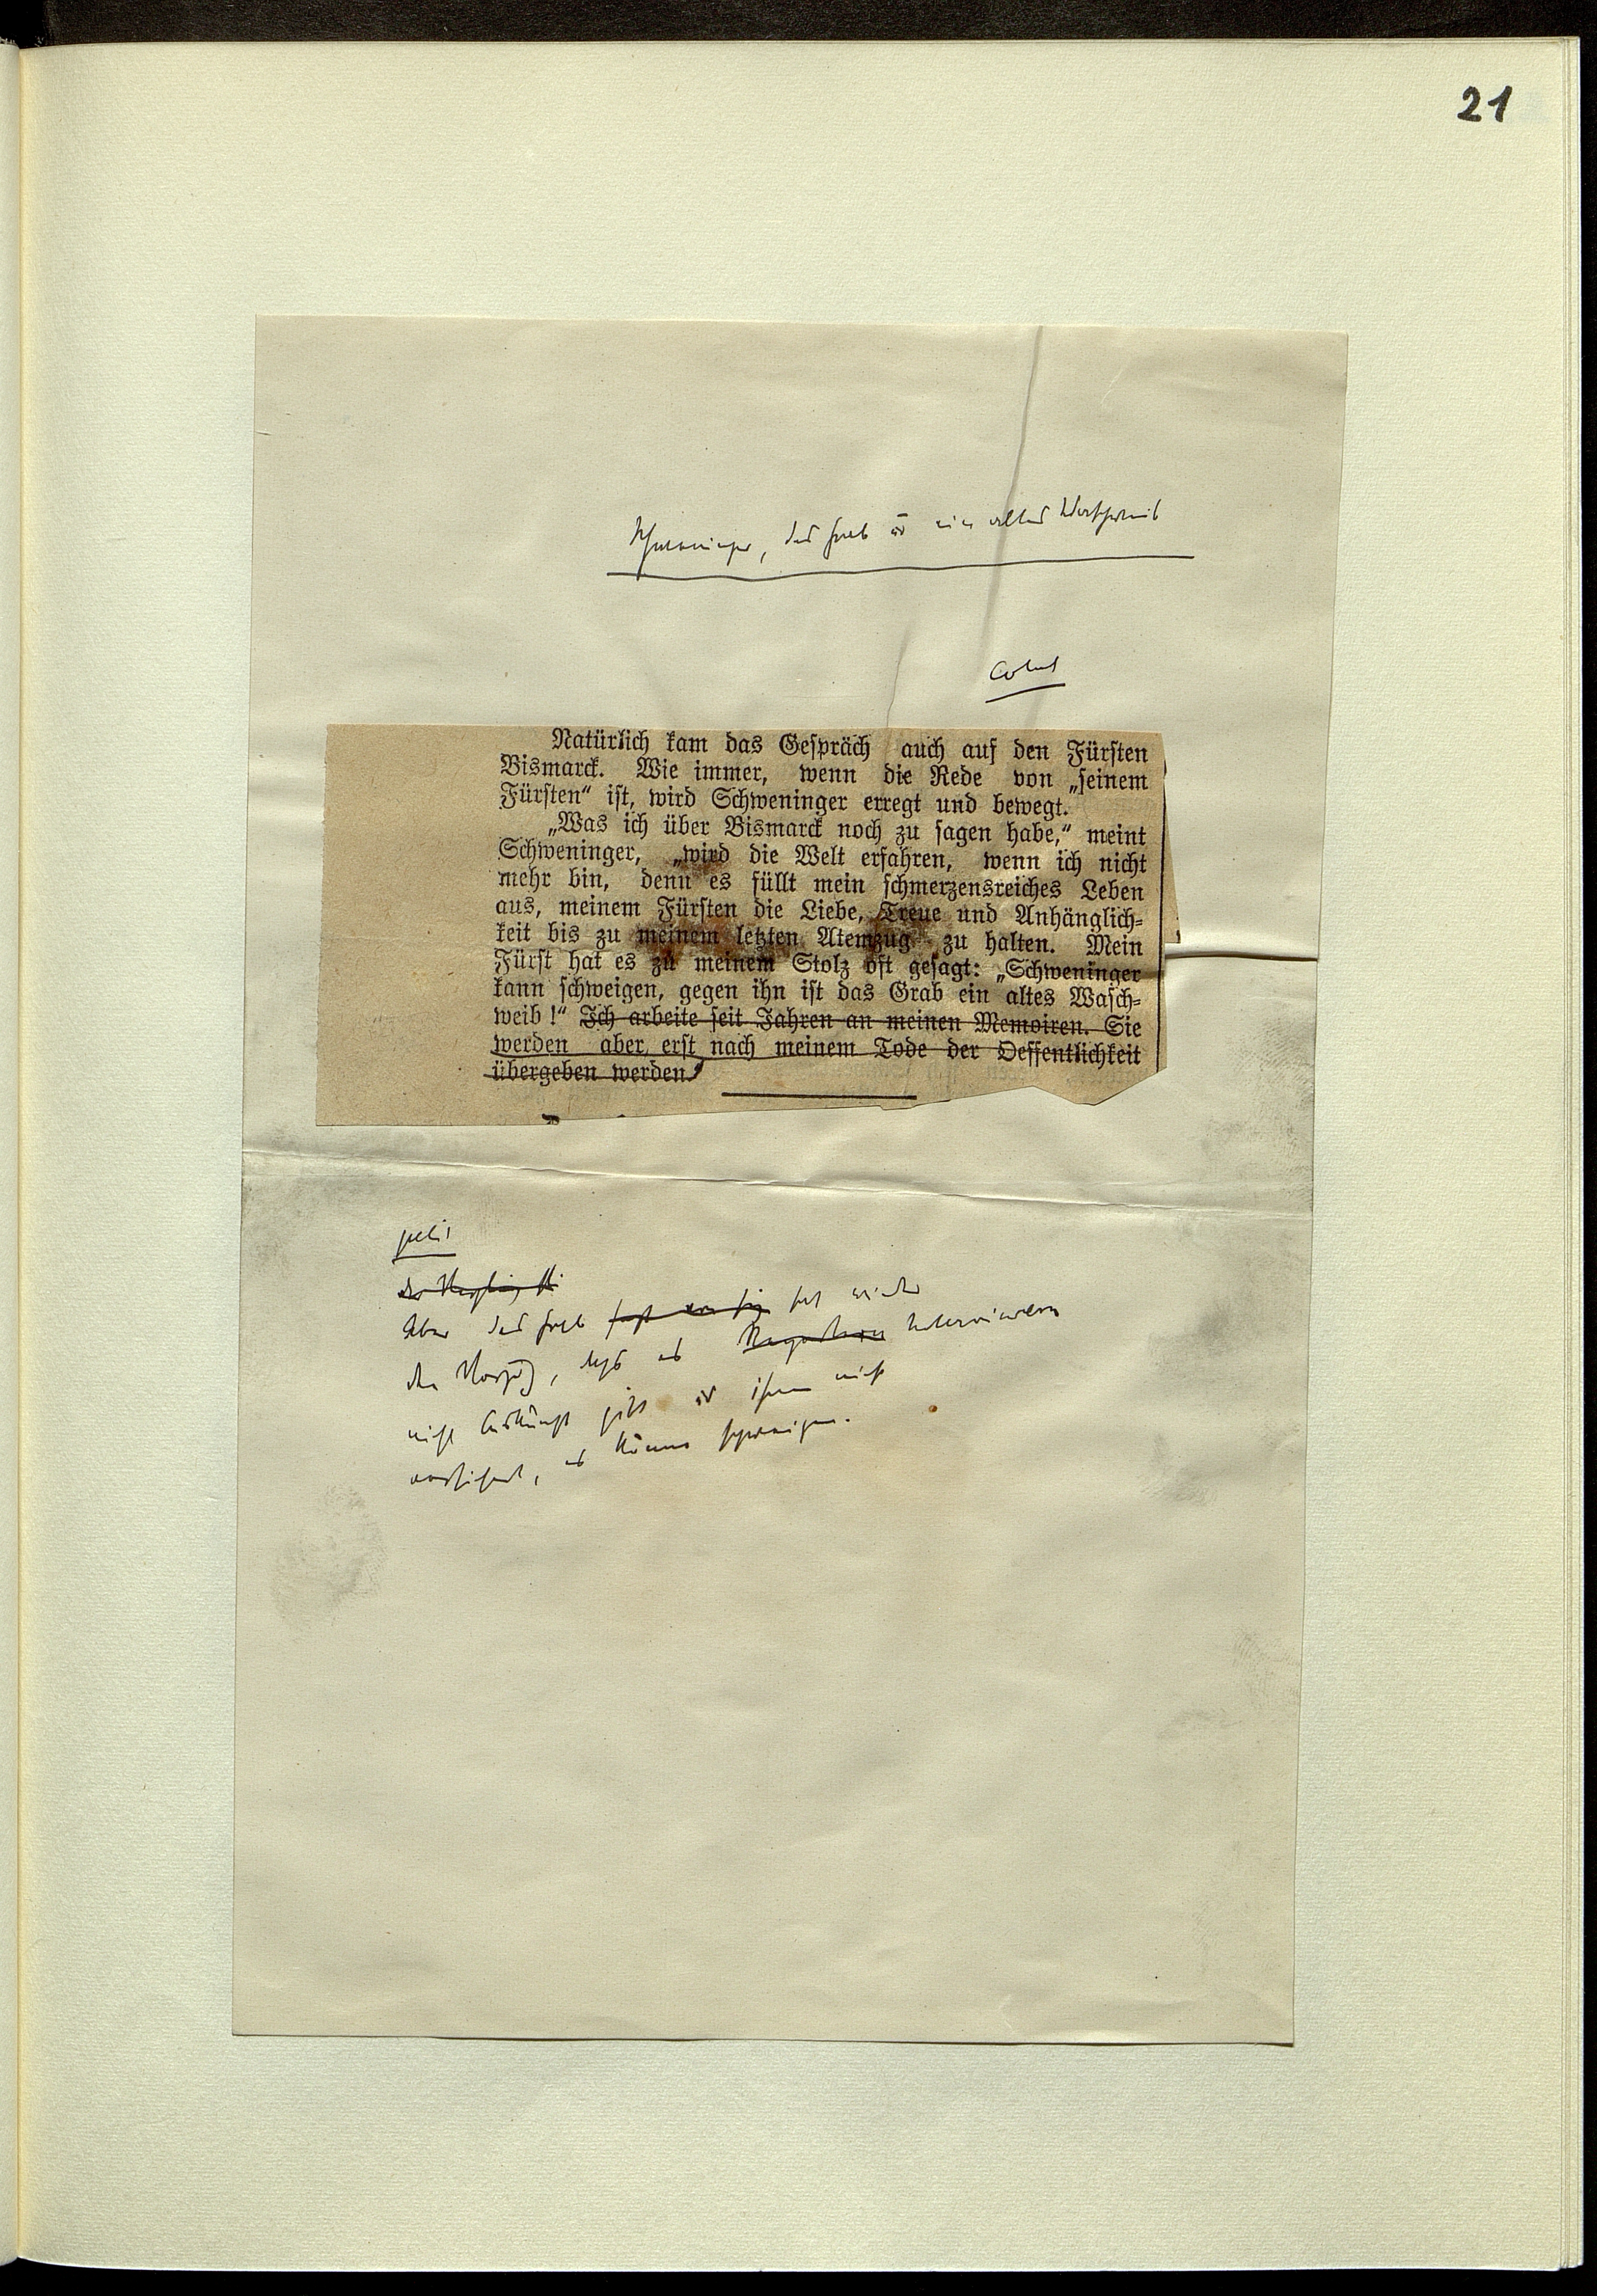 21
Schweninger, das Grab und ein altes Waschweib
Natürlich kam das Gespräch auch auf den Fürsten
Bismarck. Wie immer, wenn die Rede von „seinem
Fürsten“ ist, wird Schweninger erregt und bewegt.
„Was ich über Bismarck noch zu sagen habe,“ meint
Schweninger, „wird die Welt erfahren, wenn ich nicht
mehr bin, denn es füllt mein schmerzensreiches Leben
aus, meinem Fürsten die Liebe, Treue und Anhänglich-
keit bis zu meinem letzten Atemzug zu halten. Mein
Fürst hat es zu meinem Stolz oft gesagt: „Schweninger
kann schweigen, gegen ihn ist das Grab ein altes Wasch-
weib!“ Ich arbeite seit Jahren an meinen Memoiren. Sie
werden aber erst nach meinem Tode der Oeffentlichkeit
übergeben werden.“
Aber das Grab hat wieder
den Vorzug, daß es Interviewern
nicht Auskunft gibt und ihnen nicht
versichert, es könne schweigen.